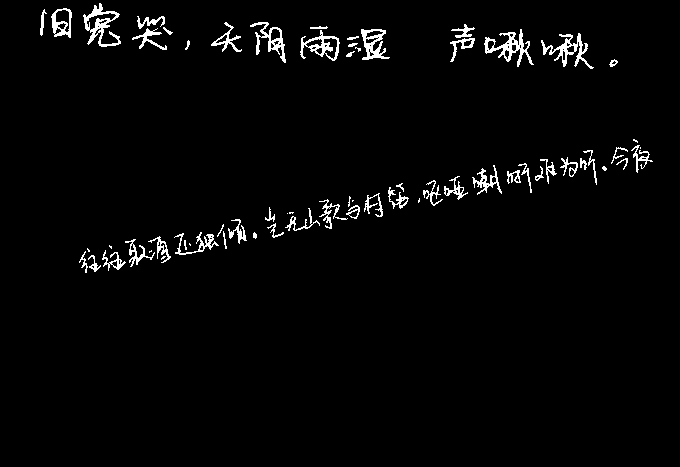 旧鬼哭,天阴雨湿 声啾啾。
往往取酒还独倾。岂无山歌与村笛,呕哑嘲哳难为听。今夜